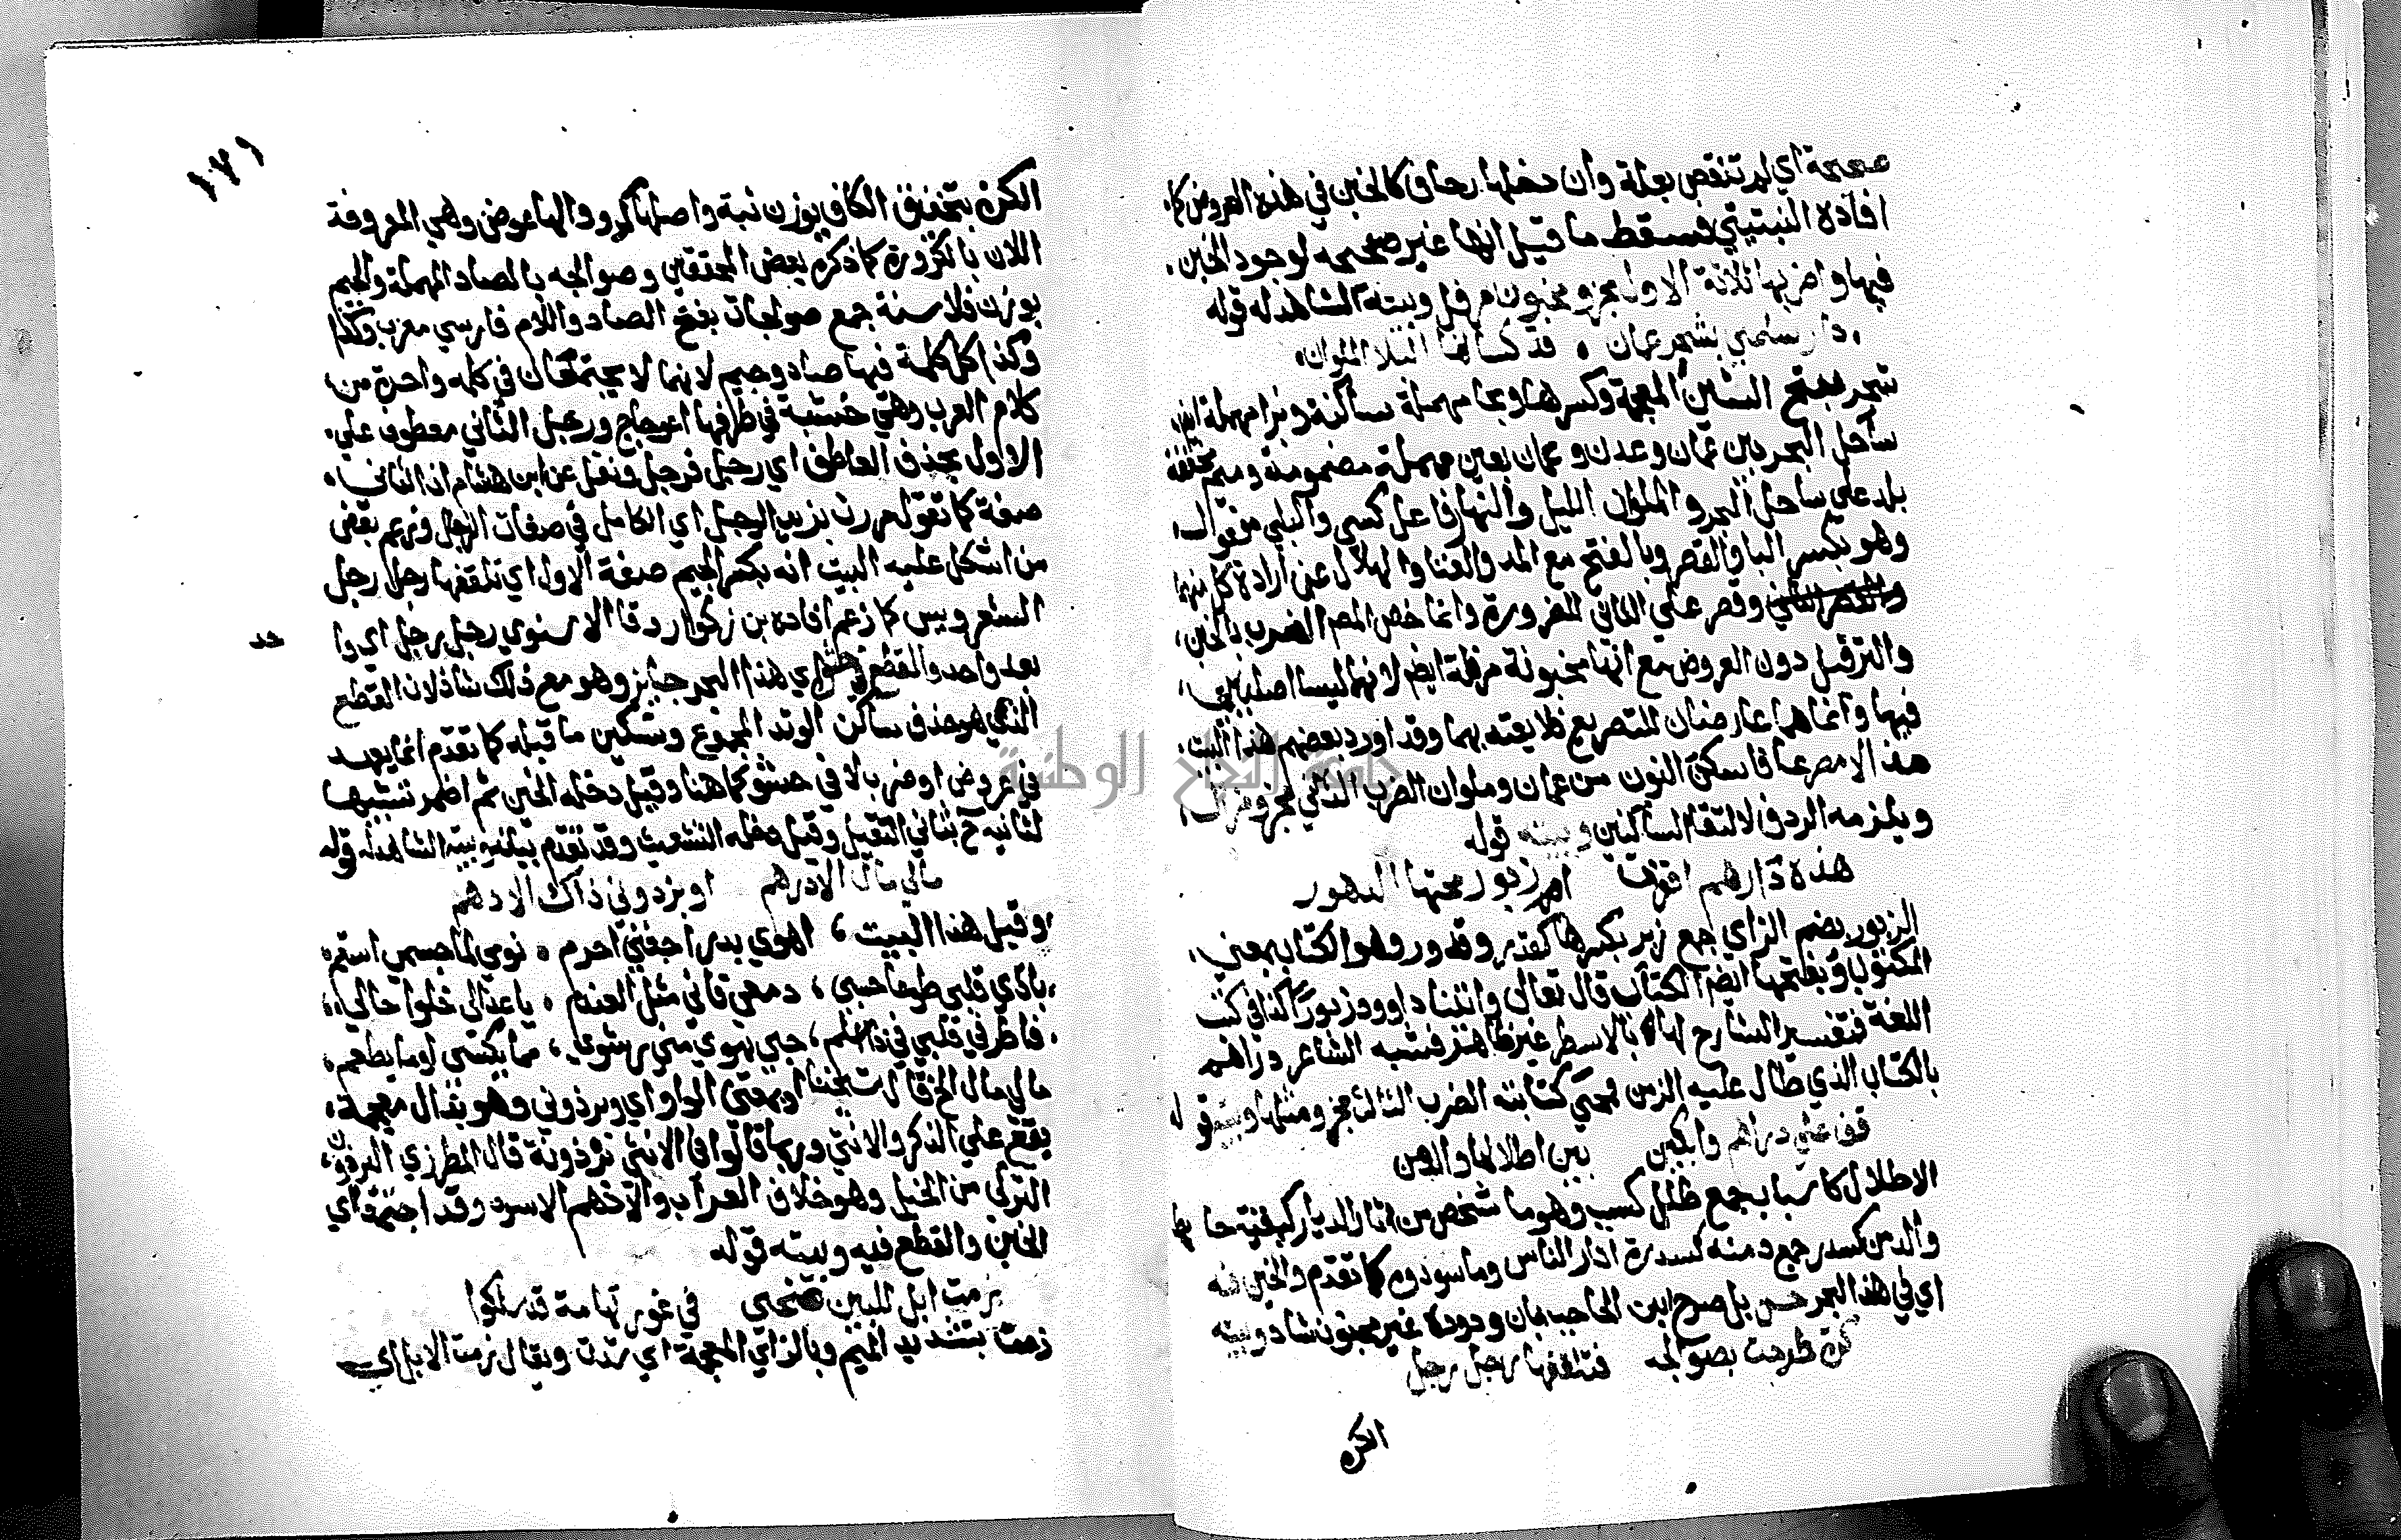 صحيحة اي لم تنقص بعلة وان دخلها زحاف كالخبن في هذه العروض كما
افاده النبتيتي فسقط ما قيل انها غير صحيحه لوجود الخبن
فيها واضربها ثلاثة الاول مجزو مخبون مرفل وبيته الشاهد له قوله
دار سلمي بشحر عمان قد كساها البلا الملوان
شحر بفتح الشين المعجمة وكسرها وبحا مهملة ساكنة وبرا مهملة
ساحل البحر بين عمان وعدن وعمان بعين مهملة مضمومة وميم مخففة
بلد علي ساحل البحر والملوان الليل والنهار فاعل كسي والبلي مفعول
وهو بكسر البا والقصر وبالفتح مع المد والفنا والهلاك عن ارادة كل منهما
وقصر علي الثاني للضرورة وانما خص المص الضرب بالخبن
والترفيل دون العروض مع انها مخبونة مرفلة ايضا لانهما ليسا اصليين
فيها وانما هما عارضان للتصريع فلا يعتد بهما وقد اورد بعضهم هذا البيت
هذا الامصرعا فاسكن النون من عمان وملوان الضرب الثاني مجزو مذال
ويلزمه الردف لالتقا الساكنين وبيته قوله
هذه دارهم اقفرت ام زبور محتها الدهور
الزبور بضم الزاي جمع زبر بكسرها كقدر وقدور وهو الكتاب بمعني
المكتوب وبفتحها ايضا الكتاب قال تعالى واتينا داوود زبورا كذا في كتب
اللغة فتفسير الشارح لها بالاسطر غير ظاهر فشبه الشاعر دارهم
بالكتاب الذي طال عليه الزمن فمحي كتابته الضرب الثالث مجزو مثلها وبيته قوله
قف علي دارهم وابكين بين اطلالها والدمن
الاطلال كاسباب جمع طلل كسبب وهو ما شخص من اثار الديار كبقية حا يط
والدمن كسدر جمع دمنه كسدرة اثار الناس وما سودوه كما تقدم والخبن فيه
اي في هذا البحر حسن بل صرح ابن الحاجب بان وروده غير مخبون شاذ وبيته
كرة طرحت بصوالجه فتلقفها رجل رجل
الكرة
١٧١
الكرة بتخفيف الكاف بوزن ثبة واصلها كرو والها عوض وهي المعروفة
الان بالكزورة كما ذكره بعض المحققين وصوالجه بالصاد المهملة والجيم
بوزن فلاسنة جمع صولجان بفتح الصاد واللام فارسي معرب وكذا
وكذا كل كلمة فيها صاد وجيم لانهما لا يجتمعان في كلمه واحدة من
كلام العرب وهي خشبة في طرفها اعوجاج ورجل الثاني معطوف علي
الاول بحذف العاطف اي رجل فرجل ونقل عن ابن هشام ان الثاني
صفة كما تقول مررت بزيد الرجل اي الكامل في صفات الرجل وزعم بعض
من اشكل عليه البيت انه بكسر الجيم صفة الاول اي تلقفها رجل رجل
الشعر وليس كما زعم افاده بن زكوار وقا الاسنوي رجل رجل اي وا
حد
بعد واحد والقطع في حشو اي هذا البحر جايز وهو مع ذلك شاذ لان القطع
الذي هو حذف ساكن الوتد المجموع وتسكين ما قبله كما تقدم انما يعهد
في عروض او ضرب لا في حشو كما هنا وقيل دخله الخبن ثم اضمر تشبيها
لثانيه ح بثاني الثقيل وقيل دخله التشعيث وقد تقدم بيانه وبيته الشاهد له قوله
مالي مال الا درهم او برذوني ذاك الادهم
وقيل هذا البيت اهوي بدرا جفني احرم نومي لما جسمي اسقم
قلبي طوعا حبي دمعي قاني مثل العندم يا عذالي خلوا حالي
قلبي في حبي يهوي مني رشوي مما يكسي او ما يطعم
مالي مال الخ او بمعني الواو اي وبرذوني وهو بذال معجمة
يقع علي الذكر والانثي وربما قالوا في الانثي برذونة قال المطرزي البرذون
التركي من الخيل وهو خلاف العراب والادهم الاسود وقد اجتمعا اي
الخبن والقطع فيه وبيته قوله
زمت ابل للبين ضحي في غور تهامة قد سلكوا
زمت بتشديد الميم وبالزاي المعجمة اي شدت ويقال زمت الابل اي
جامعة النجاح الوطنية